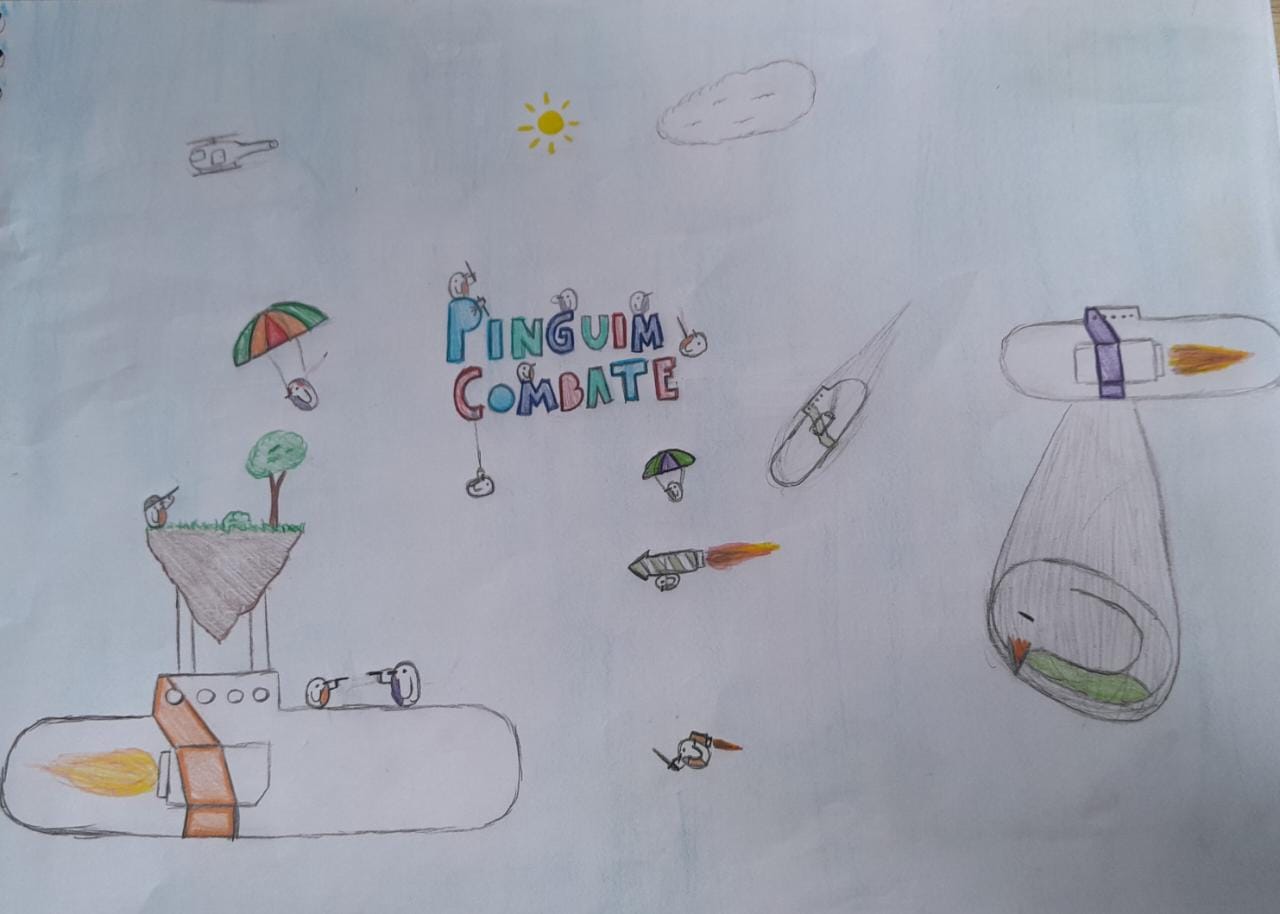 PINGUIM
COMBATE